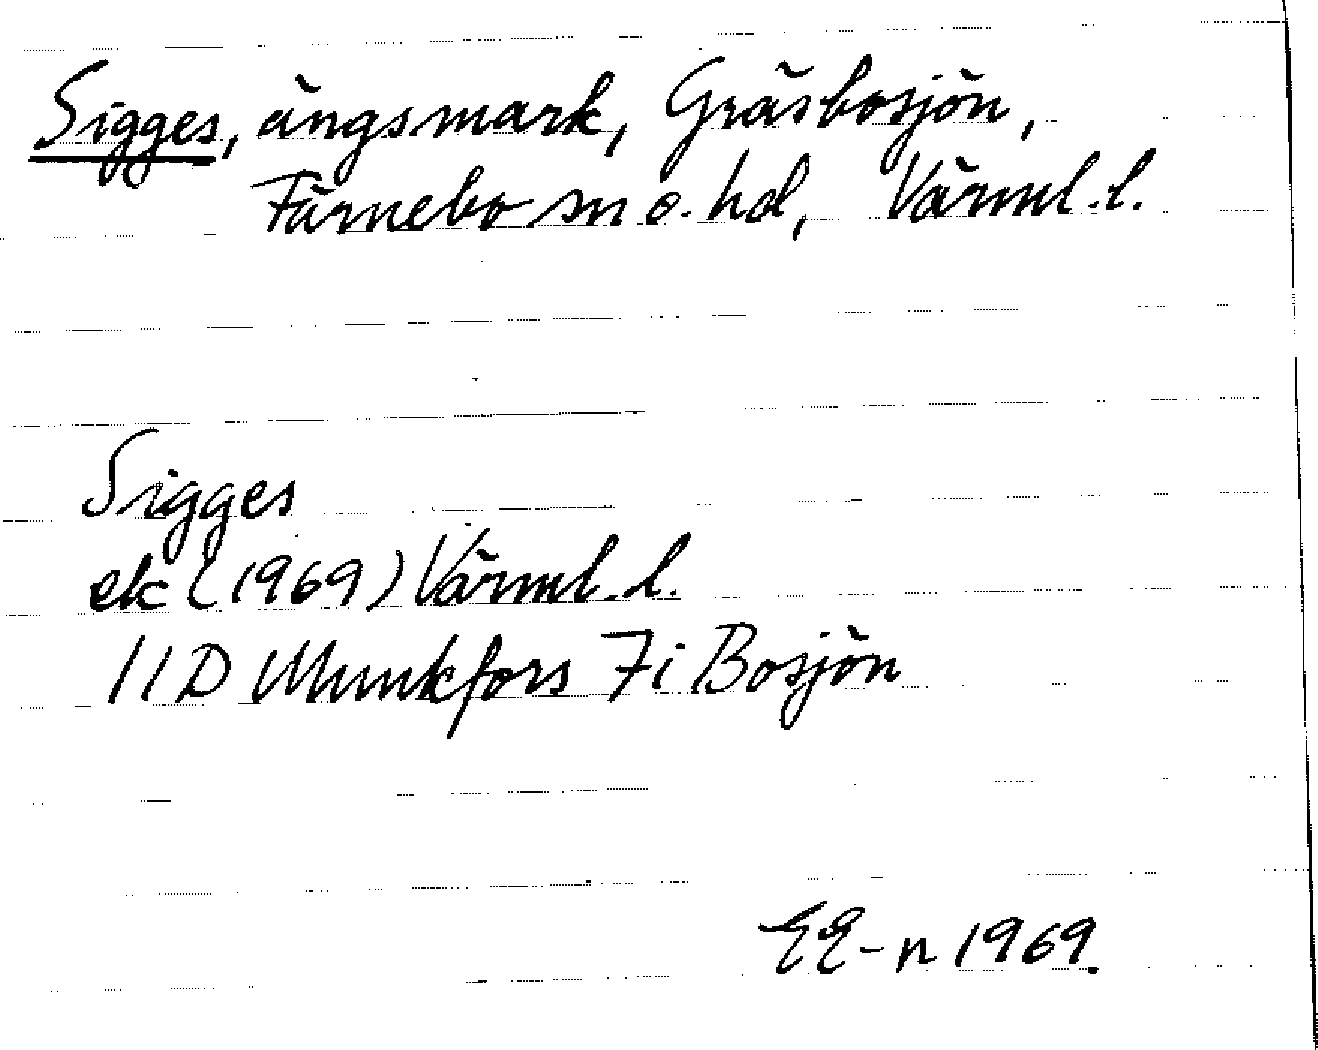 Sigges, ängsmark, Gräsbosjön,
Färnebo sn o. hd, Värml. l.
Sigges
ek (1969) Värml. l.
11D Munkfors 7i Bosjön
EE-n 1969.